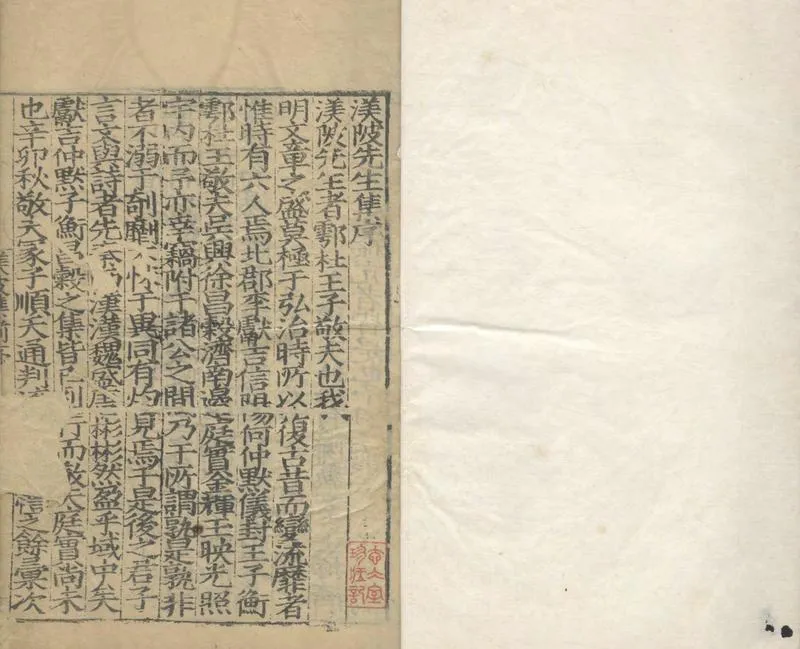 渼陂先生集序
渼陂先生者鄠杜王子敬夫也我
明文章之盛莫極于弘治時所以復古昔而變流靡者
惟時有六人焉北郡李獻吉信陽何仲默儀封王子衡
鄠杜王敬夫吳興徐昌穀濟南邊庭實金輝玉映光照
宇內而予亦幸竊附于諸公之間乃于所謂孰是孰非
者不溺于剖劘不怵于異同有灼見焉于是後之君子
言文與詩者先漢魏盛唐彬彬然盈乎域中矣
獻吉仲默子衡昌穀之集皆已刻行而敬夫庭實尚未
也辛卯秋敬夫冢子順夫通判 恒之餘彙次